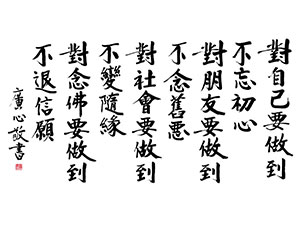 對自己要做到
不忘初心
對朋友要做到
不念舊惡
對社會要做到
不變隨緣
對念佛要做到
不退信願
廣心敬書